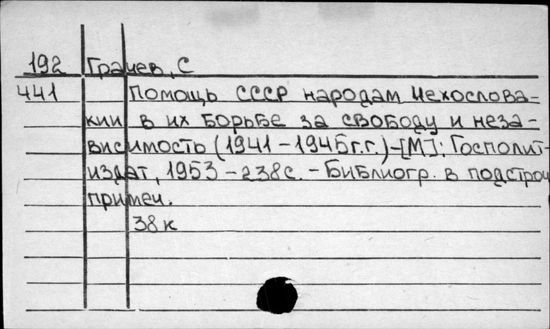 192 Грачев, С
441 Помощь СССР народам Чехослова-
кии в их борьбе за свободу и неза-
висимость (1941-1945г.г.)-[М]: Госполит-
издат, 1953 - 238с. - Библиогр. в подстроч
примеч.
38к